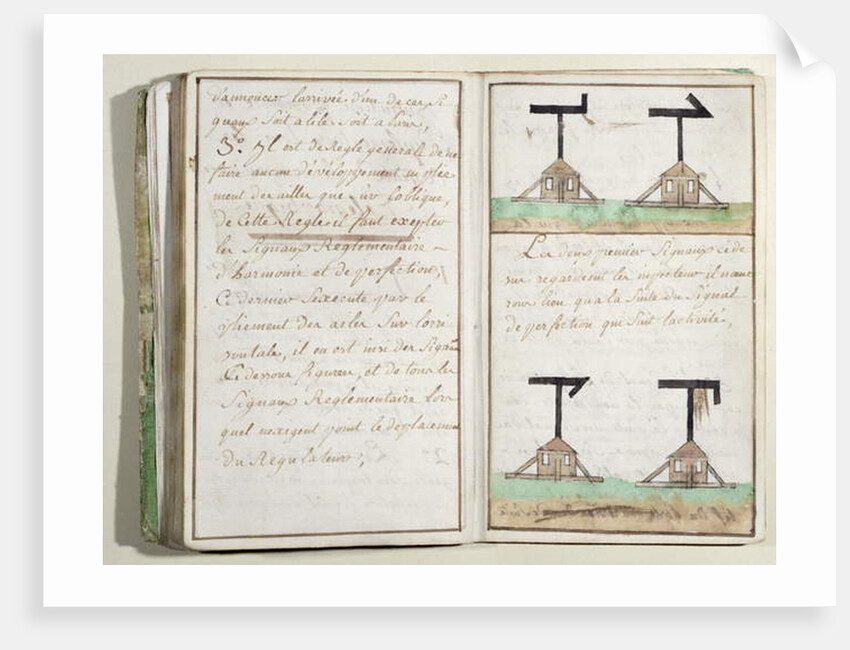 d'annoncer larrivée d'un de ces si
gnaux soit a lile soit a l'aire,
3.º Il est de Regle generalle de ne
faire aucun dévéloppement ni plie
ment des ailles que sur loblique,
de Cette Regle il faut excepter
les Signaux Reglementaire
d'harmonie et de perfection
Ce dernier sexecute par le
pliement des ailes sur lorri
zontale, il en est insi des Signaux
Ci dessous figurée, et de tous les
Signaux Reglementaire lors
quel nexigent point le deplacement
du Regulateur,
Les deux premier Signaux ci de
sus regardesint les inspecteur il nauc
rons lieu qua la suite du Signal
de perfection qui suit lactivité,